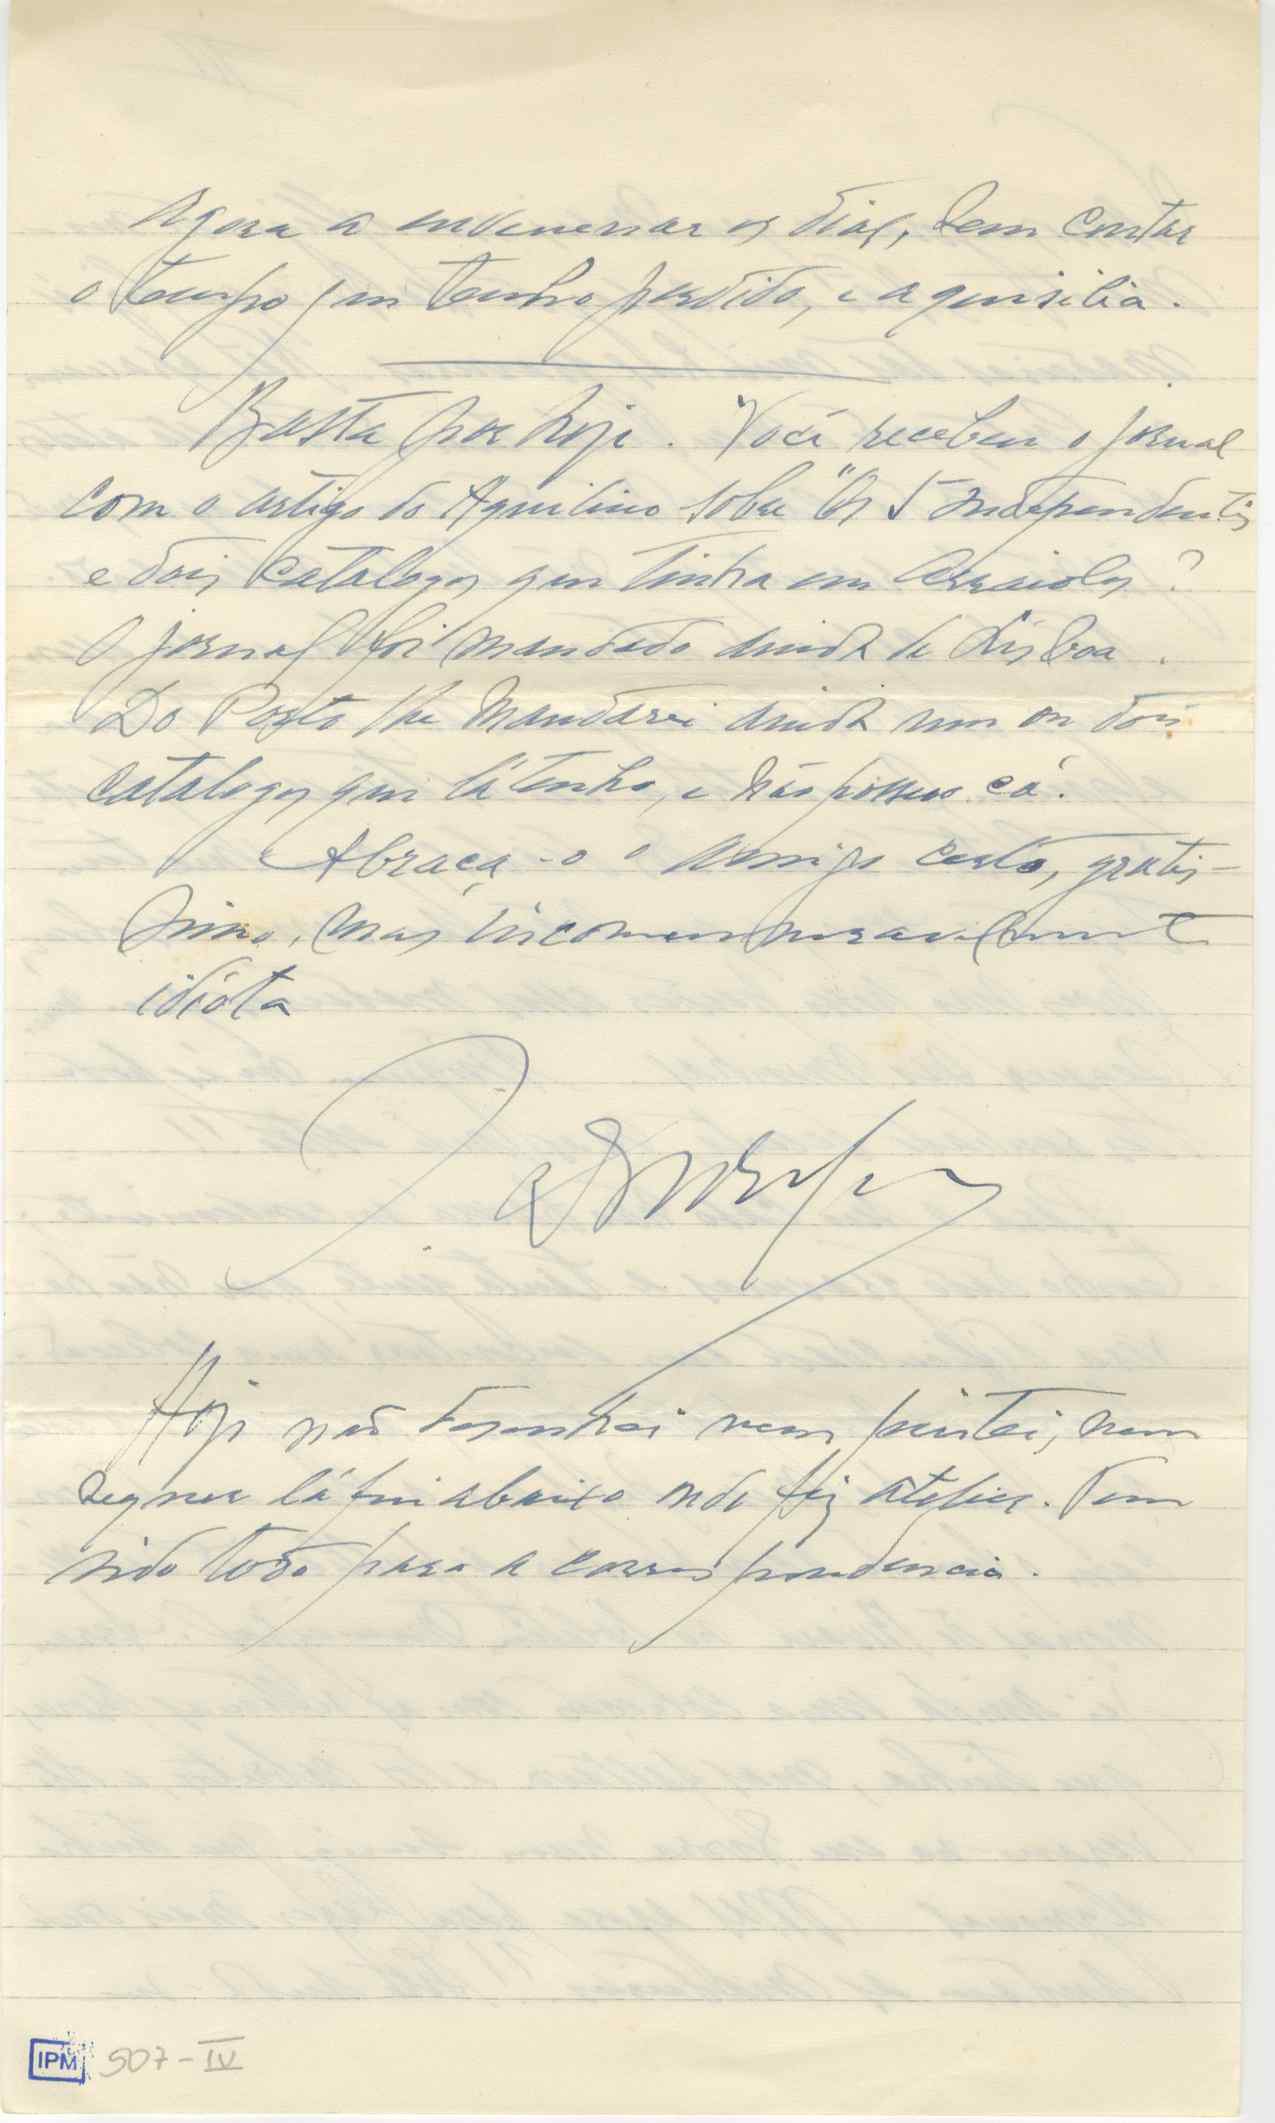 Agora a envenenar os dias, sem contar
o tempo que tenho perdido, e a quisilia.
Basta por hoje. Você recebeu o jornal
com o artigo do Aquilino sobre "Os 5 Independentes
e dois catalogos que tinha em Arraiolos?
O jornal foi mandado ainda de Lisboa.
Do Porto lhe mandarei ainda um ou dois
catalogos que lá tenho, e não possuo cá.
Abraça-o o amigo certo, gratis-
simo, mas incomensuravelmente
idiota
Hoje não desenhei nem pintei, nem
sequer lá fui abaixo onde fiz atelier. Tem
sido todo para a correspondencia.
IPM 507-IV